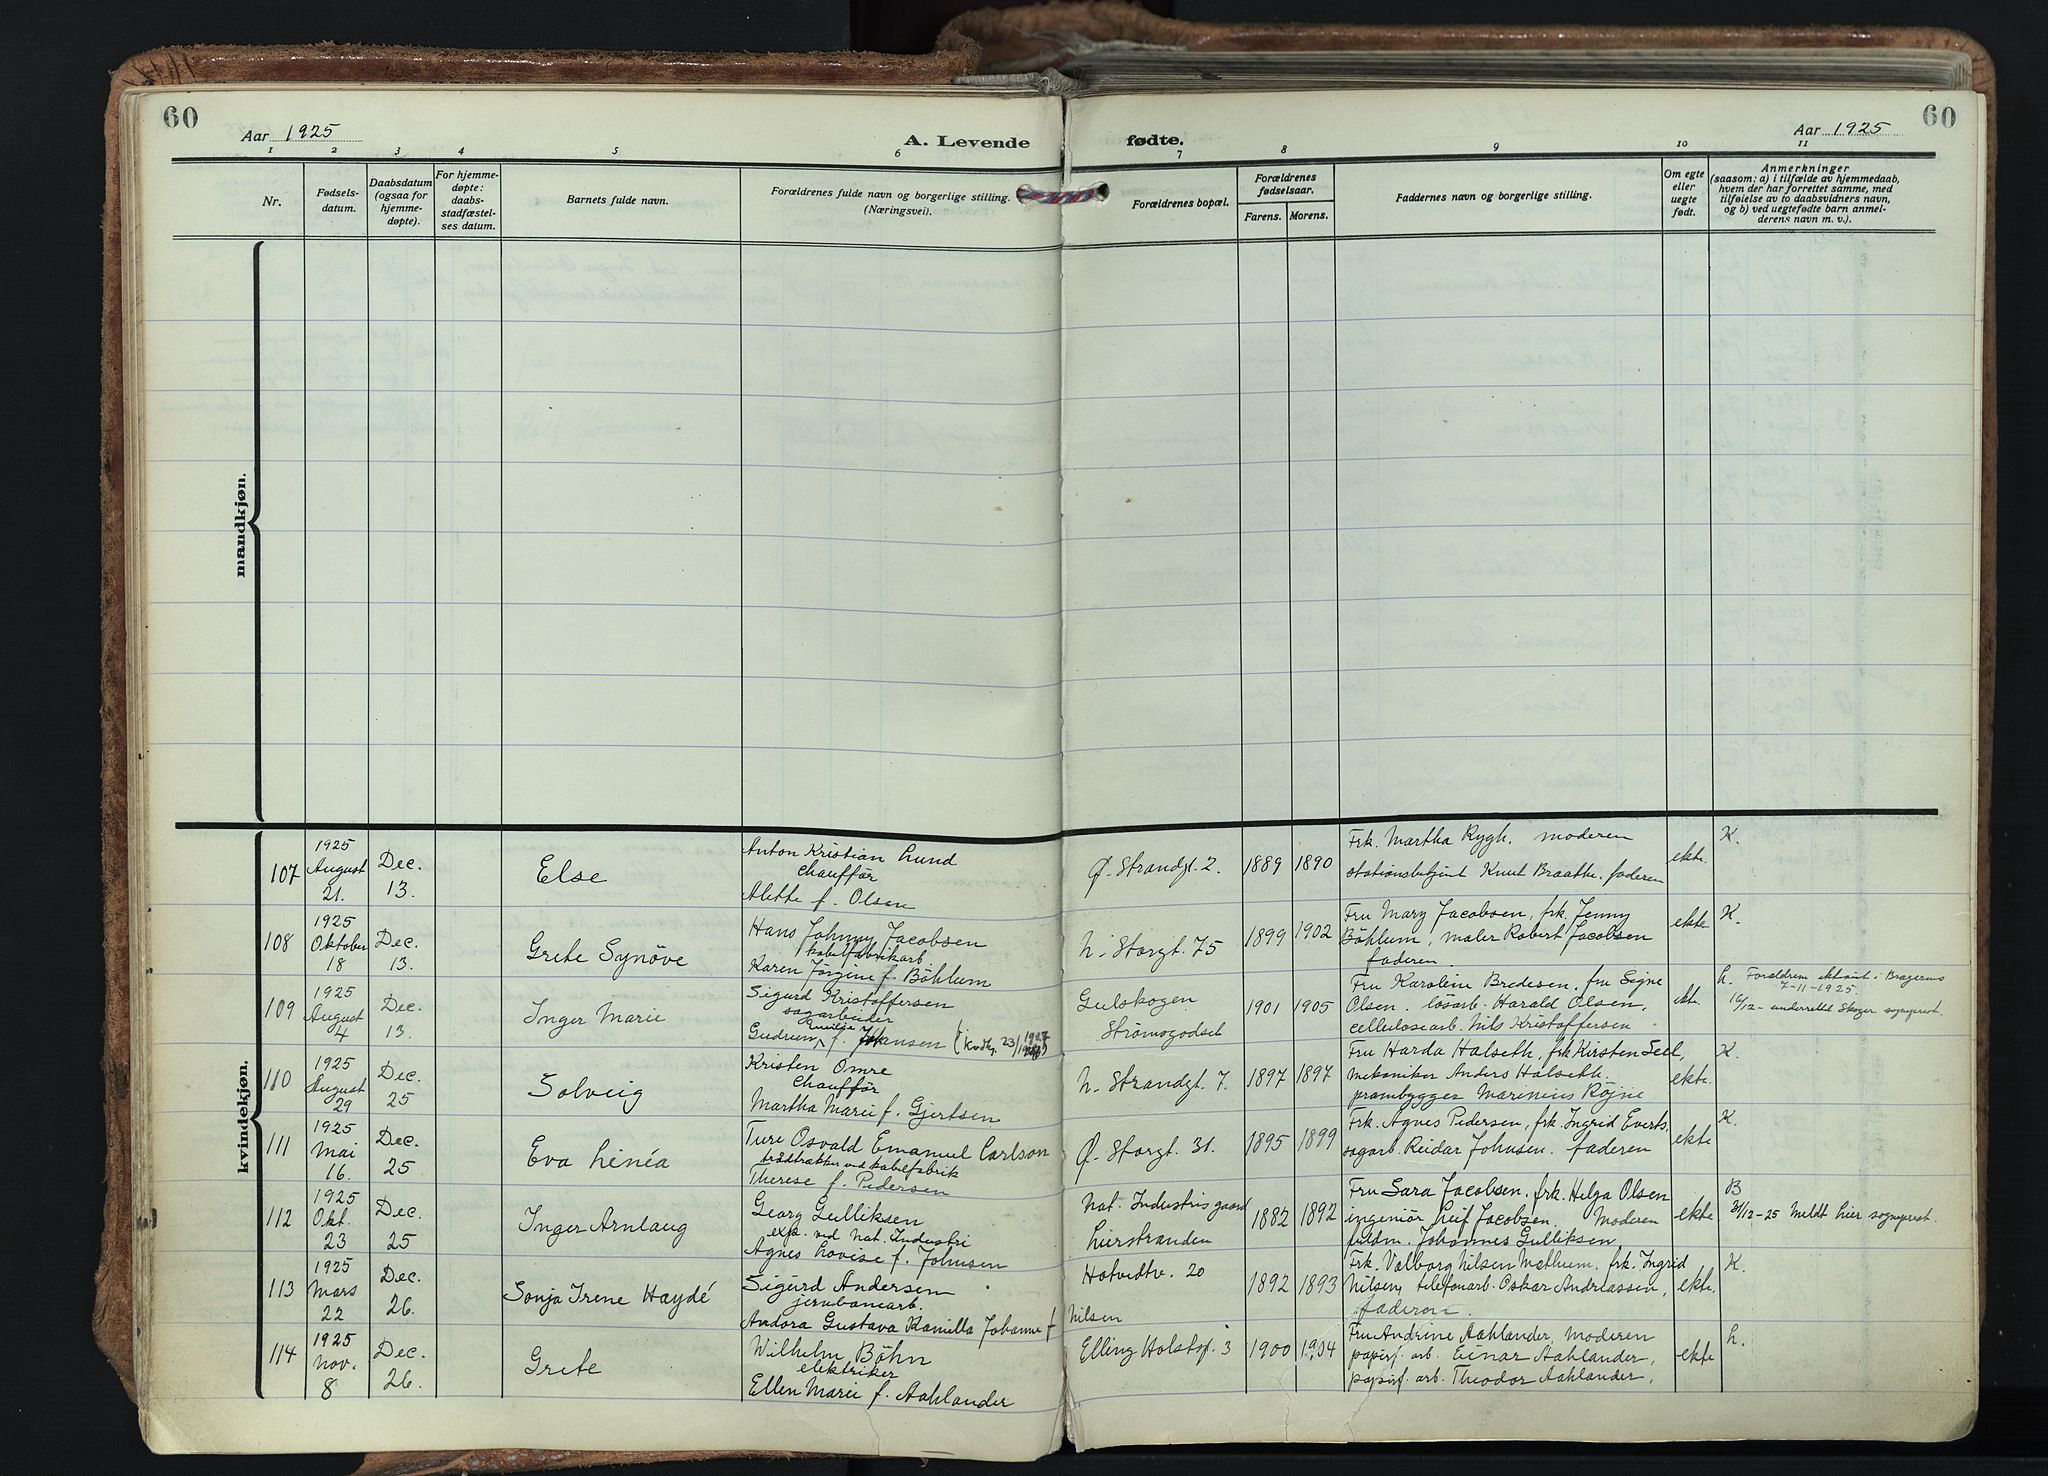 60
Aar 1925
A. Levende fødte.
Aar 1925
60
1 2 3 4 5 6 7 8 9 10 11
Nr.
Fødsels-
datum.
Daabsdatum
(ogsaa for
hjemme-
døpte).
For hjemme-
døpte:
daabs-
stadfæstel-
ses datum.
Barnets fulde navn.
Forældrenes fulde navn og borgerlige stilling.
(Næringsvei).
Forældrenes bopæl.
Forældrenes
fødselsaar.
Farens. Morens.
Faddernes navn og borgerlige stilling.
Om egte
eller
uegte
født.
Anmerkninger
(saasom: a) i tilfælde av hjemmedaab,
hvem der har forrettet samme, med
tilføielse av to daabsvidners navn,
og b) ved uegtefødte barn anmel-
derens navn m. v.).
mandkjøn.
kvindekjøn.
107
1925
August
21.
Dec.
13.
Else
Anton Kristian Lund
Chauffør
Alette f. Olsen
Ø. Strandgt. 2.
1889 1890
Frk. Martha Rygh. moderen
stationsbetjent Knut Braathe. faderen
ekte.
K.
108
1925
Oktober
18
Dec.
13.
Grete Synøve
Hans Johnny Jacobsen
kabelfabrikarb
Karen Jørgine f. Böhlum
N. Storgt. 75
1899 1902
Fru Mary Jacobsen, frk. Jenny
Böhlum, maler Robert Jacobsen
faderen.
ekte
K.
109
1925
August
4
Dec.
13.
Inger Marie
Sigurd Kristoffersen
sagarbeider
Gudrun Emilie f. Johansen
Gulskogen
Strømsgodset
1901 1905
Fru Karoline Bredesen. fru Signe
Olsen. løsarb. Harald Olsen,
cellulosearb. Nils Kristoffersen
ekt.
L. Forældrene ektev. i Bragernes
7-11-1925.
16/12- underrettet Skoger sogneprest.
110
1925
August
29
Dec.
25
Solveig
Kristen Omre
Chauffør
Martha Marie f. Gjertsen
N. Strandgt. 7.
1897 1897
Fru Harda Halseth, frk Kirsten Seel,
mekaniker Anders Halseth.
prambygger Marenius Røjne
ekte.
K.
111
1925
Mai
16.
Dec.
25
Eva Linéa
Ture Osvald Emanuel Carlson
trådtrækker ved kabelfabrik
Therese f. Pedersen
Ø. Storgt. 31.
1895 1899
Frk. Agnes Pedersen, frk. Ingrid Everts,
sagarb. Reidar Johnsen. faderen
ekte
K.
112
1925
Okt.
23
Dec.
25
Inger Arnlaug
Georg Gulliksen
exp. ved Nat. Industri
Agnes Lovise f. Johnsen
Nat. Industris gaard
Lierstranden
1882 1892
Fru Sara Jacobsen. frk. Helga Olsen
ingeniör Leif Jacobsen. Moderen
fuldm. Johannes Gulliksen
ekte
B
31/12-25 Meldt Lier sogneprest.
113
1925
Mars
22
Dec.
26.
Sonja Irene Haydé
Sigurd Andersen
jernbanearb.
Andora Gustava Kamilla Johanne f Nilsen
Hotvedtv. 20
1892 1893
Frk. Valborg Nilsen Methum. frk. Ingrid
Nilsen, telefonarb. Oskar Andreassen,
faderen.
ekte.
K.
114
1925
Nov.
8
Dec.
26.
Grete
Wilhelm Böhn
elektriker
Ellen Marie f. Aahlander
Elling Holstsg. 3
1900 1904
Fru Andrine Aahlander, moderen
papirf. arb. Einar Aahlander,
papirf. arb. Theodor Aahlander,
ekte
L.